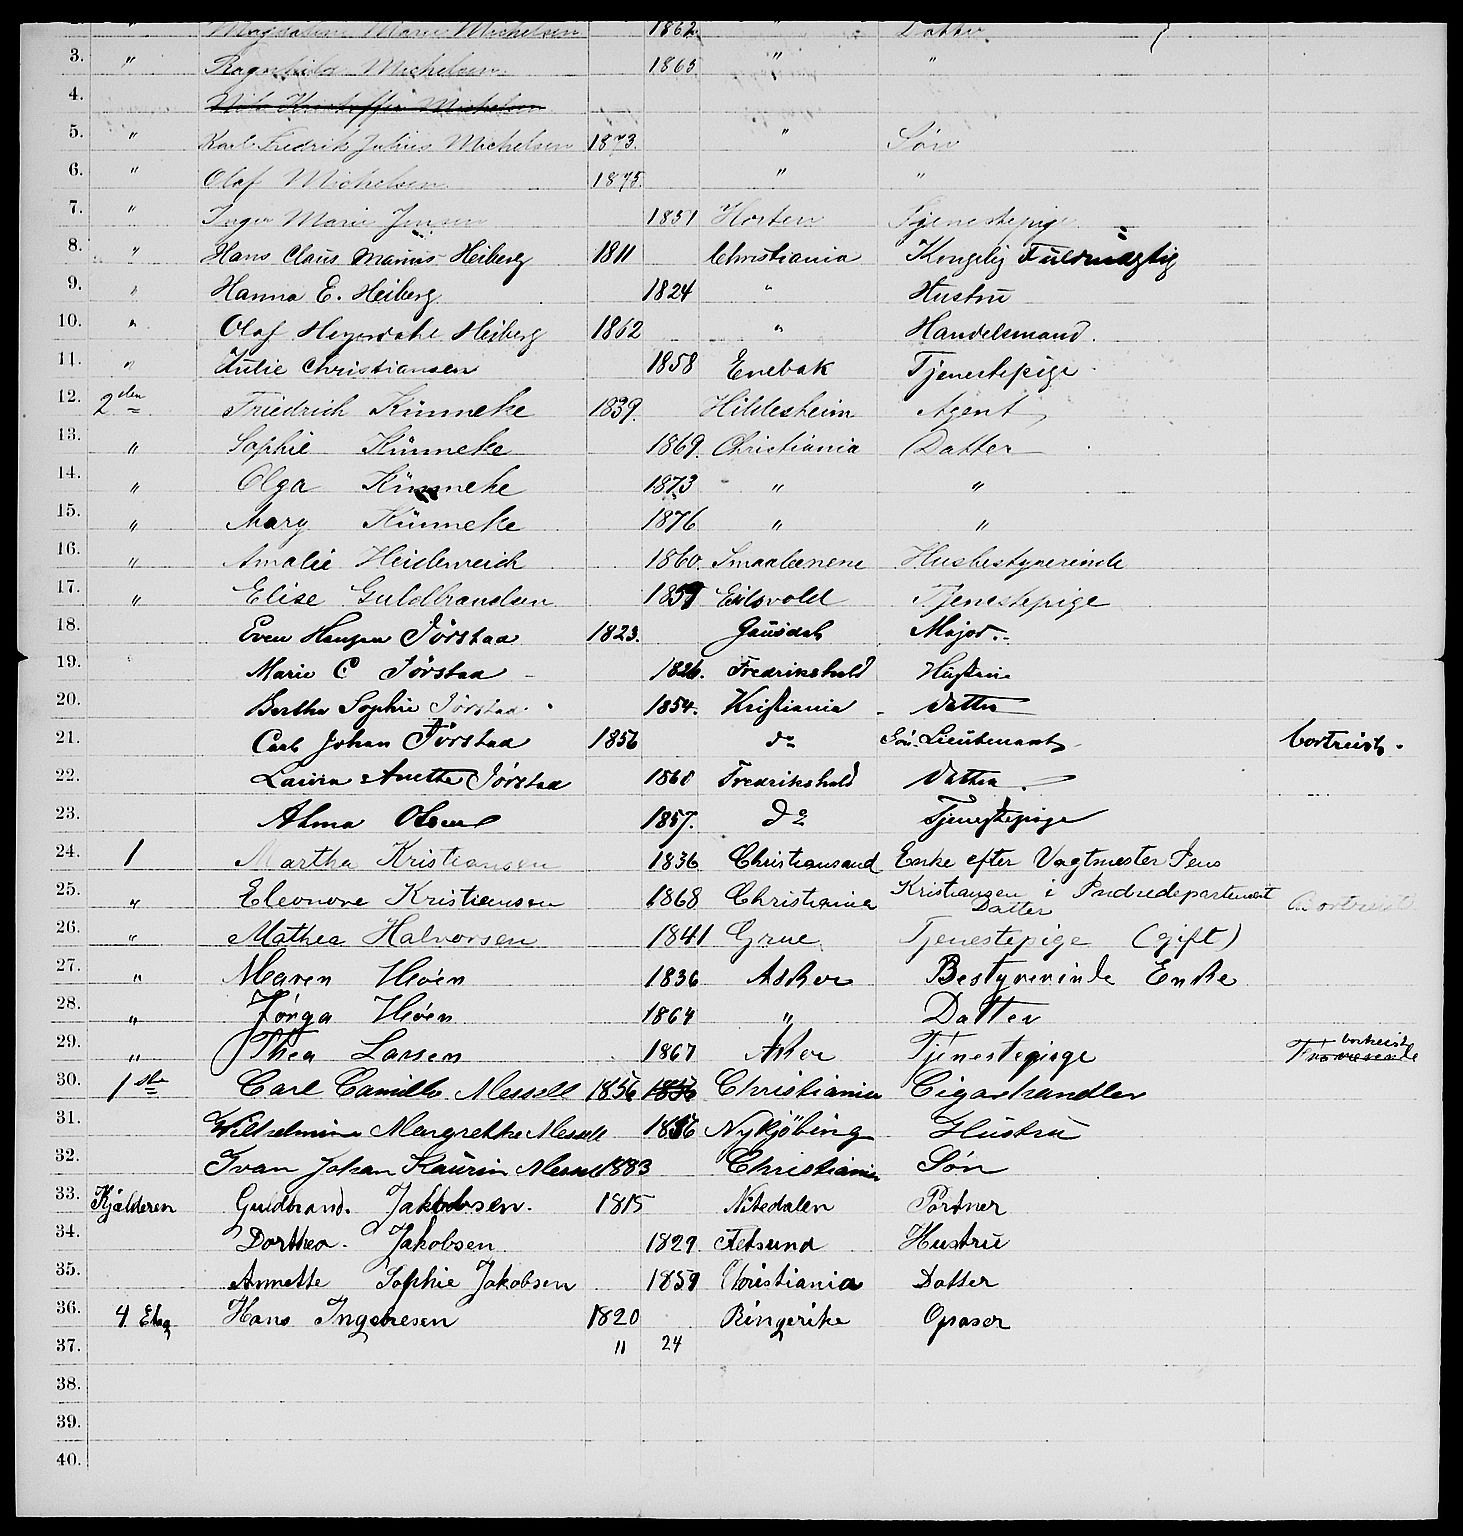 " Magdalene Marie Michelsen 1862 " Datter
3. " Ragnhilda Michelsen 1865 " "
4. Nils Kristoffer Michelsen
5. " Karl Fredrik Julius Michelsen 1873. " Søn
6. " Olaf Michelsen 1875. " "
7. " Inger Marie Jensen 1851 Horten Tjenestepige
8. " Hans Claus Marius Heiberg 1811 Christiania Kongelig Fuldmægtig
9. " Hanna E. Heiberg 1824 " Hustru
10. " Olaf Heyerdahl Heiberg 1862 " Handelsmand.
11. " Julie Christiansen 1858 Enebak Tjenestepige
12. 2den Friedrich Künneke 1839. Hildesheim Agent
13. " Sophie Künneke 1869. Christiania Datter
14. " Olga Künneke 1873 " "
15. " Mary Künneke 1876 " "
16. " Amalie Heidenreich 1860. Smaalenene Husbestyrerinde
17. " Elise Guldbrandsen 1859 Eidsvold Tjenestepige
18. Even Hansen Jörstad 1823. Gausdal Major.
19. Marie C Jörstad 1826. Fredrikshald Hustru
20. Bertha Sophie Jörstad 1854. Kristiania Datter
21. Carl Johan Jörstad 1856 do Søn. Lieutenant bortreist.
22. Laura Anette Jörstad 1860 Fredrikshald Datter.
23. Alma Olsen 1857. Do Tjenestepige
24. 1 Martha Kristiansen 1836 Christiansand Enke efter Vagtmester Jens
25. " Eleonore Kristiansen 1868 Christiania Kristiansen i Indredepartement Datter Bortreist
26. " Mathea Halvorsen 1841 Grue Tjenestepige (gift)
27. " Maren Hvéen 1836 Asker Bestyrerinde Enke
28. " Jörga Hvéen 1864 " Datter
29. " Thea Larsen 1867 Asker Tjenestepige bortreist Fraværende
30. 1ste Carl Camillo Messell 1856 1856 Christiania Cigarhandler
31. Wilhelmine Margrethe Messell 1856 Nykjöbing Hustru
32. Ivan Johan Kaurin Messell 1883 Christiania Søn
33. Kjælderen Guldbrand. Jakobsen. 1815 Nitedalen Portner
34. Dorthea. Jakobsen 1829 Fetsund Hustru
35. Annette Sophie Jakobsen 1859 Christiania Datter
36. 4 Etg Hans Ingebresen 1820 Ringerike Opaser
37. 11 24
38.
39.
40.